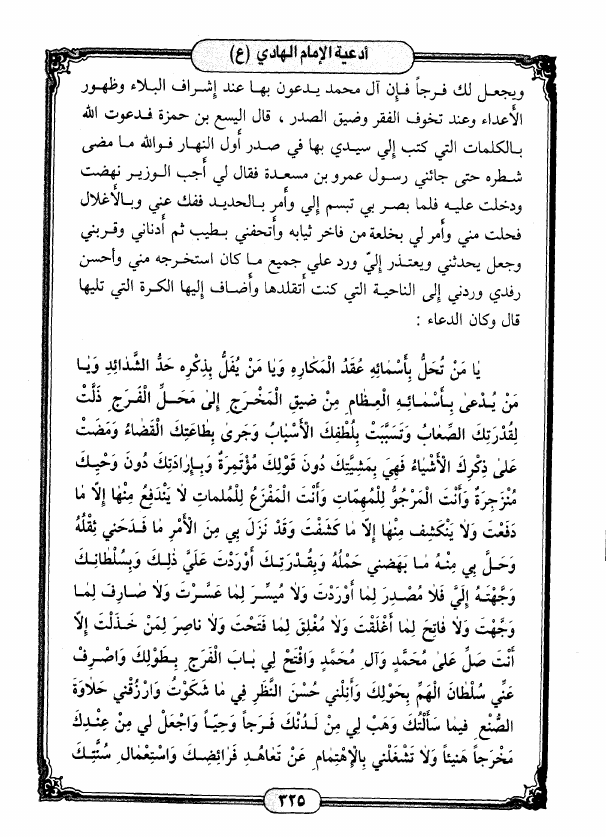 أدعية الإمام الهادي (ع)
ويجعل لك فرجاً فإن آل محمد يدعون بها عند إشراف البلاء وظهور
الأعداء وعند تخوف الفقر وضيق الصدر ، قال اليسع بن حمزة فدعوت الله
بالكلمات التي كتب إلي سيدي بها في صدر أول النهار فوالله ما مضى
شطره حتى جائني رسول عمرو بن مسعدة فقال لي أجب الوزير نهضت
ودخلت عليه فلما بصر بي تبسم إلي وأمر بالحديد ففك عني وبالأغلال
فحلت مني وأمر لي بخلعة من فاخر ثيابه وأتحفني بطيب ثم أدناني وقربني
وجعل يحدثني ويعتذر إليّ ورد علي جميع ما كان استخرجه مني وأحسن
رفدي وردني إلى الناحية التي كنت أتقلدها وأضاف إليها الكرة التي تليها
قال وكان الدعاء :
يٰا مَنْ تُحَلُّ بِأَسْمٰائِهِ عُقَدُ الْمَكٰارِهِ وَيٰا مَنْ يُفَلُّ بِذِكْرِهِ حَدُّ الشَّدٰائِدِ وَيٰا
مَنْ يُدْعىٰ بِأَسْمٰائِهِ الْعِظٰامِ مِنْ ضيقِ الْمَخْرَجِ إِلىٰ مَحَلِّ الْفَرَجِ ذَلَّتْ
لِقُدْرَتِكَ الصِّعٰابُ وَتَسَبَّبَتْ بِلُطْفِكَ الْأَسْبٰابُ وَجَرىٰ بِطٰاعَتِكَ الْقَضٰاءُ وَمَضَتْ
عَلىٰ ذِكْرِكَ الْأَشْيٰاءُ فَهِيَ بِمَشِيَّتِكَ دُونَ قَوْلِكَ مُؤْتَمِرَةٌ وَبِإِرٰادَتِكَ دُونَ وَحْيِكَ
مُنْزَجِرَةٌ وَأَنْتَ الْمَرْجُوُّ لِلْمُهِمّٰاتِ وَأَنْتَ الْمَفْزَعُ لِلْمُلِمٰاتِ لاٰ يَنْدَفِعُ مِنْهٰا إِلّاٰ مٰا
دَفَعْتَ وَلاٰ يَنْكَشِفُ مِنْهٰا إِلّاٰ مٰا كَشَفْتَ وَقَدْ نَزَلَ بي مِنَ الْأَمْرِ مٰا فَدَحَني ثِقْلُهُ
وَحَلَّ بي مِنْهُ مٰا بَهَضَني حَمْلُهُ وَبِقُدْرَتِكَ أَوْرَدْتَ عَلَيَّ ذٰلِكَ وَبِسُلْطٰانِكَ
وَجَّهْتَهُ إِلَيَّ فَلاٰ مُصْدِرَ لِمٰا أَوْرَدْتَ وَلاٰ مُيَسِّرَ لِمٰا عَسَّرْتَ وَلاٰ صٰارِفَ لِمٰا
وَجَّهْتَ وَلاٰ فٰاتِحَ لِمٰا أَغْلَقْتَ وَلاٰ مُغْلِقَ لِمٰا فَتَحْتَ وَلاٰ نٰاصِرَ لِمَنْ خَذَلْتَ إِلّاٰ
أَنْتَ صَلِّ عَلىٰ مُحَمَّدٍ وَآلِ مُحَمَّدٍ وَافْتَحْ لي بٰابَ الْفَرَجِ بِطَوْلِكَ وَاصْرِفْ
عَنّي سُلْطٰانَ الْهَمِّ بِحَوْلِكَ وَأَنِلْني حُسْنَ النَّظَرِ في مٰا شَكَوْتُ وَارْزُقْني حَلاٰوَةَ
الصُّنْعِ فيمٰا سَأَلْتُكَ وَهَبْ لي مِنْ لَدُنْكَ فَرَجاً وَحِيّاً وَاجْعَلْ لي مِنْ عِنْدِكَ
مَخْرَجاً هَنيئاً وَلاٰ تَشْغَلْني بِالْإِهْتِمٰامِ عَنْ تَعٰاهُدِ فَرٰائِضِكَ وَاسْتِعْمٰالِ سُنَّتِكَ
٣٢٥